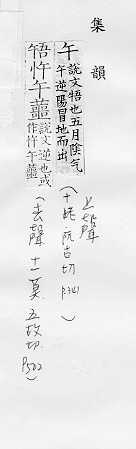 集韻
午說文牾也五月陰气
午逆陽冒地而出
牾忤午蘁說文逆也或
作忤午蘁
上聲
(十姥 阮古切 P341)
(去聲 十一莫 五故切 P502)